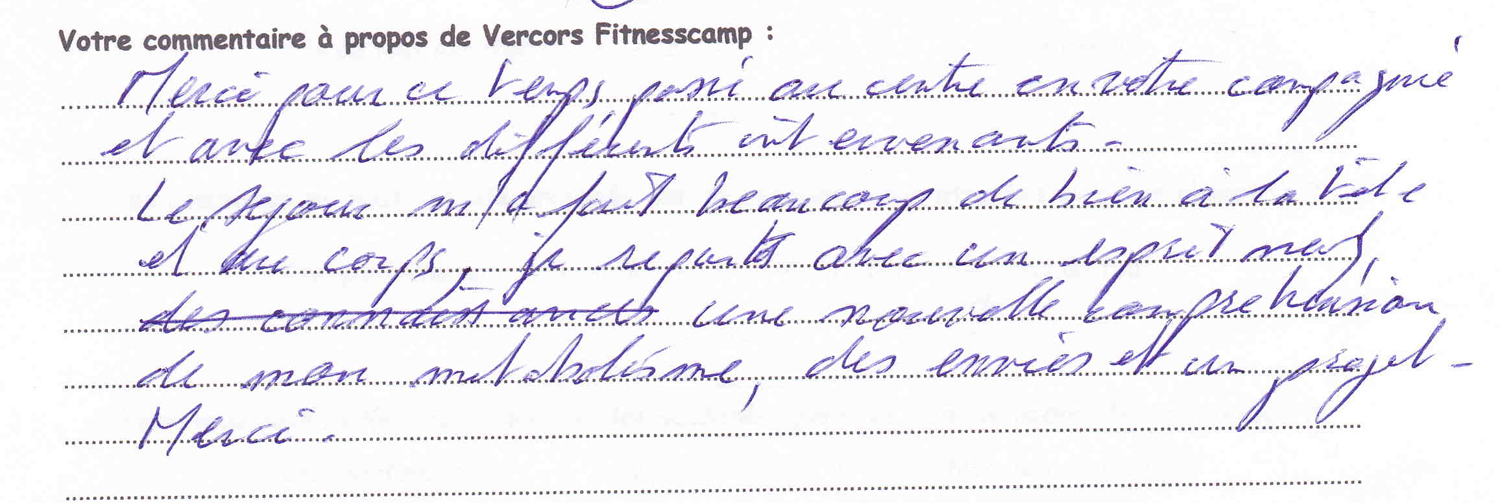 Votre commentaire à propos de Vercors Fitnesscamp :
Merci pour ce temps passé au centre en votre compagnie
et avec les différents intervenants.
Le séjour m'a fait beaucoup de bien à la tête
et au corps, je repars avec un esprit neuf,
des connaissances une nouvelle compréhension
de mon métabolisme, des envies et un projet.
Merci.